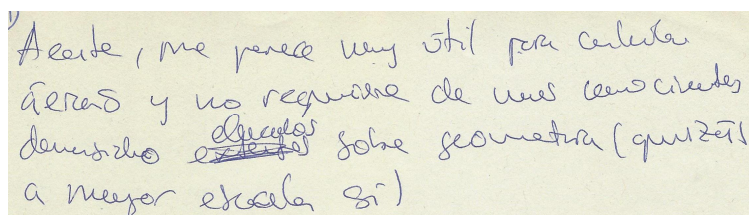 Acerte, me parece muy útil para calcular
áreas y no requiere de unos conocimientos
demasiado elevados sobre geometría (quizás
a mayor escala sí)